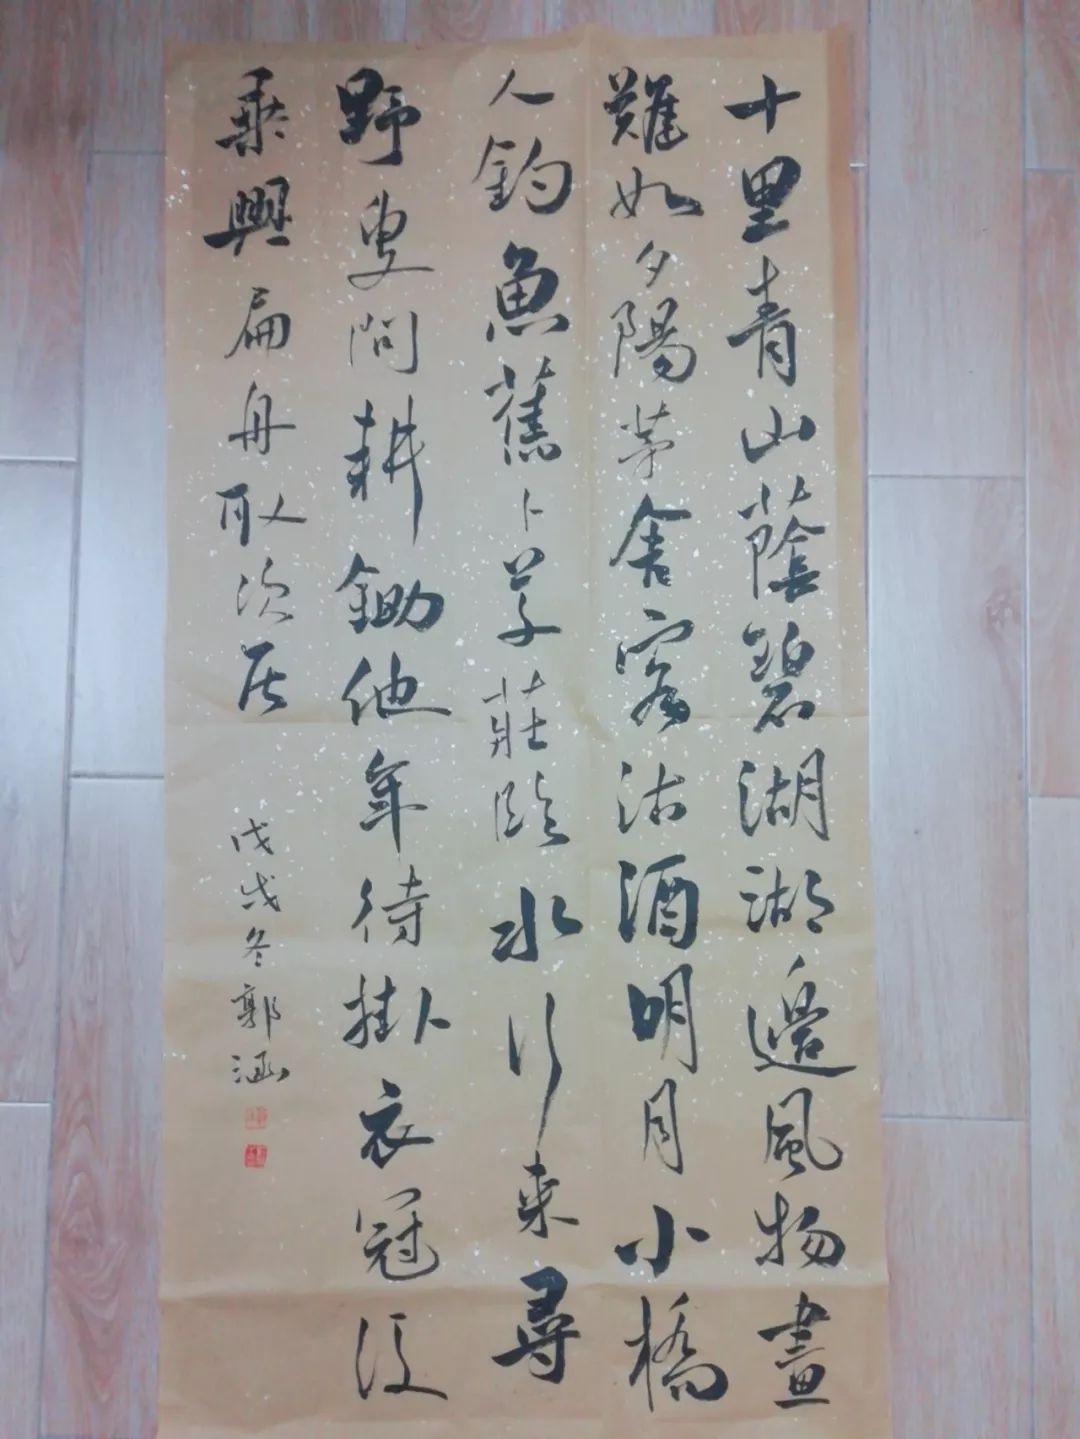 十里青山蔭碧湖湖邊風物畫
難如夕陽茅舍客沽酒明月小橋
人釣魚舊卜草莊臨水竹來尋
野叟問耕鋤他年待掛衣冠後
乘興扁舟取次居
戊戌冬郭涵